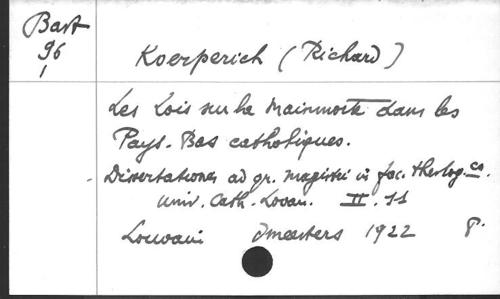 Bast
96
1
Koerperich (Richard)
Les Lois sur la Mainmorte dans les
Pays-Bas catholiques.
Dissertationes ad gr. magistri in fac. theolog. cs.
Univ. Cath. Lovan. II. 11
Louvain Smeesters 1922 8°